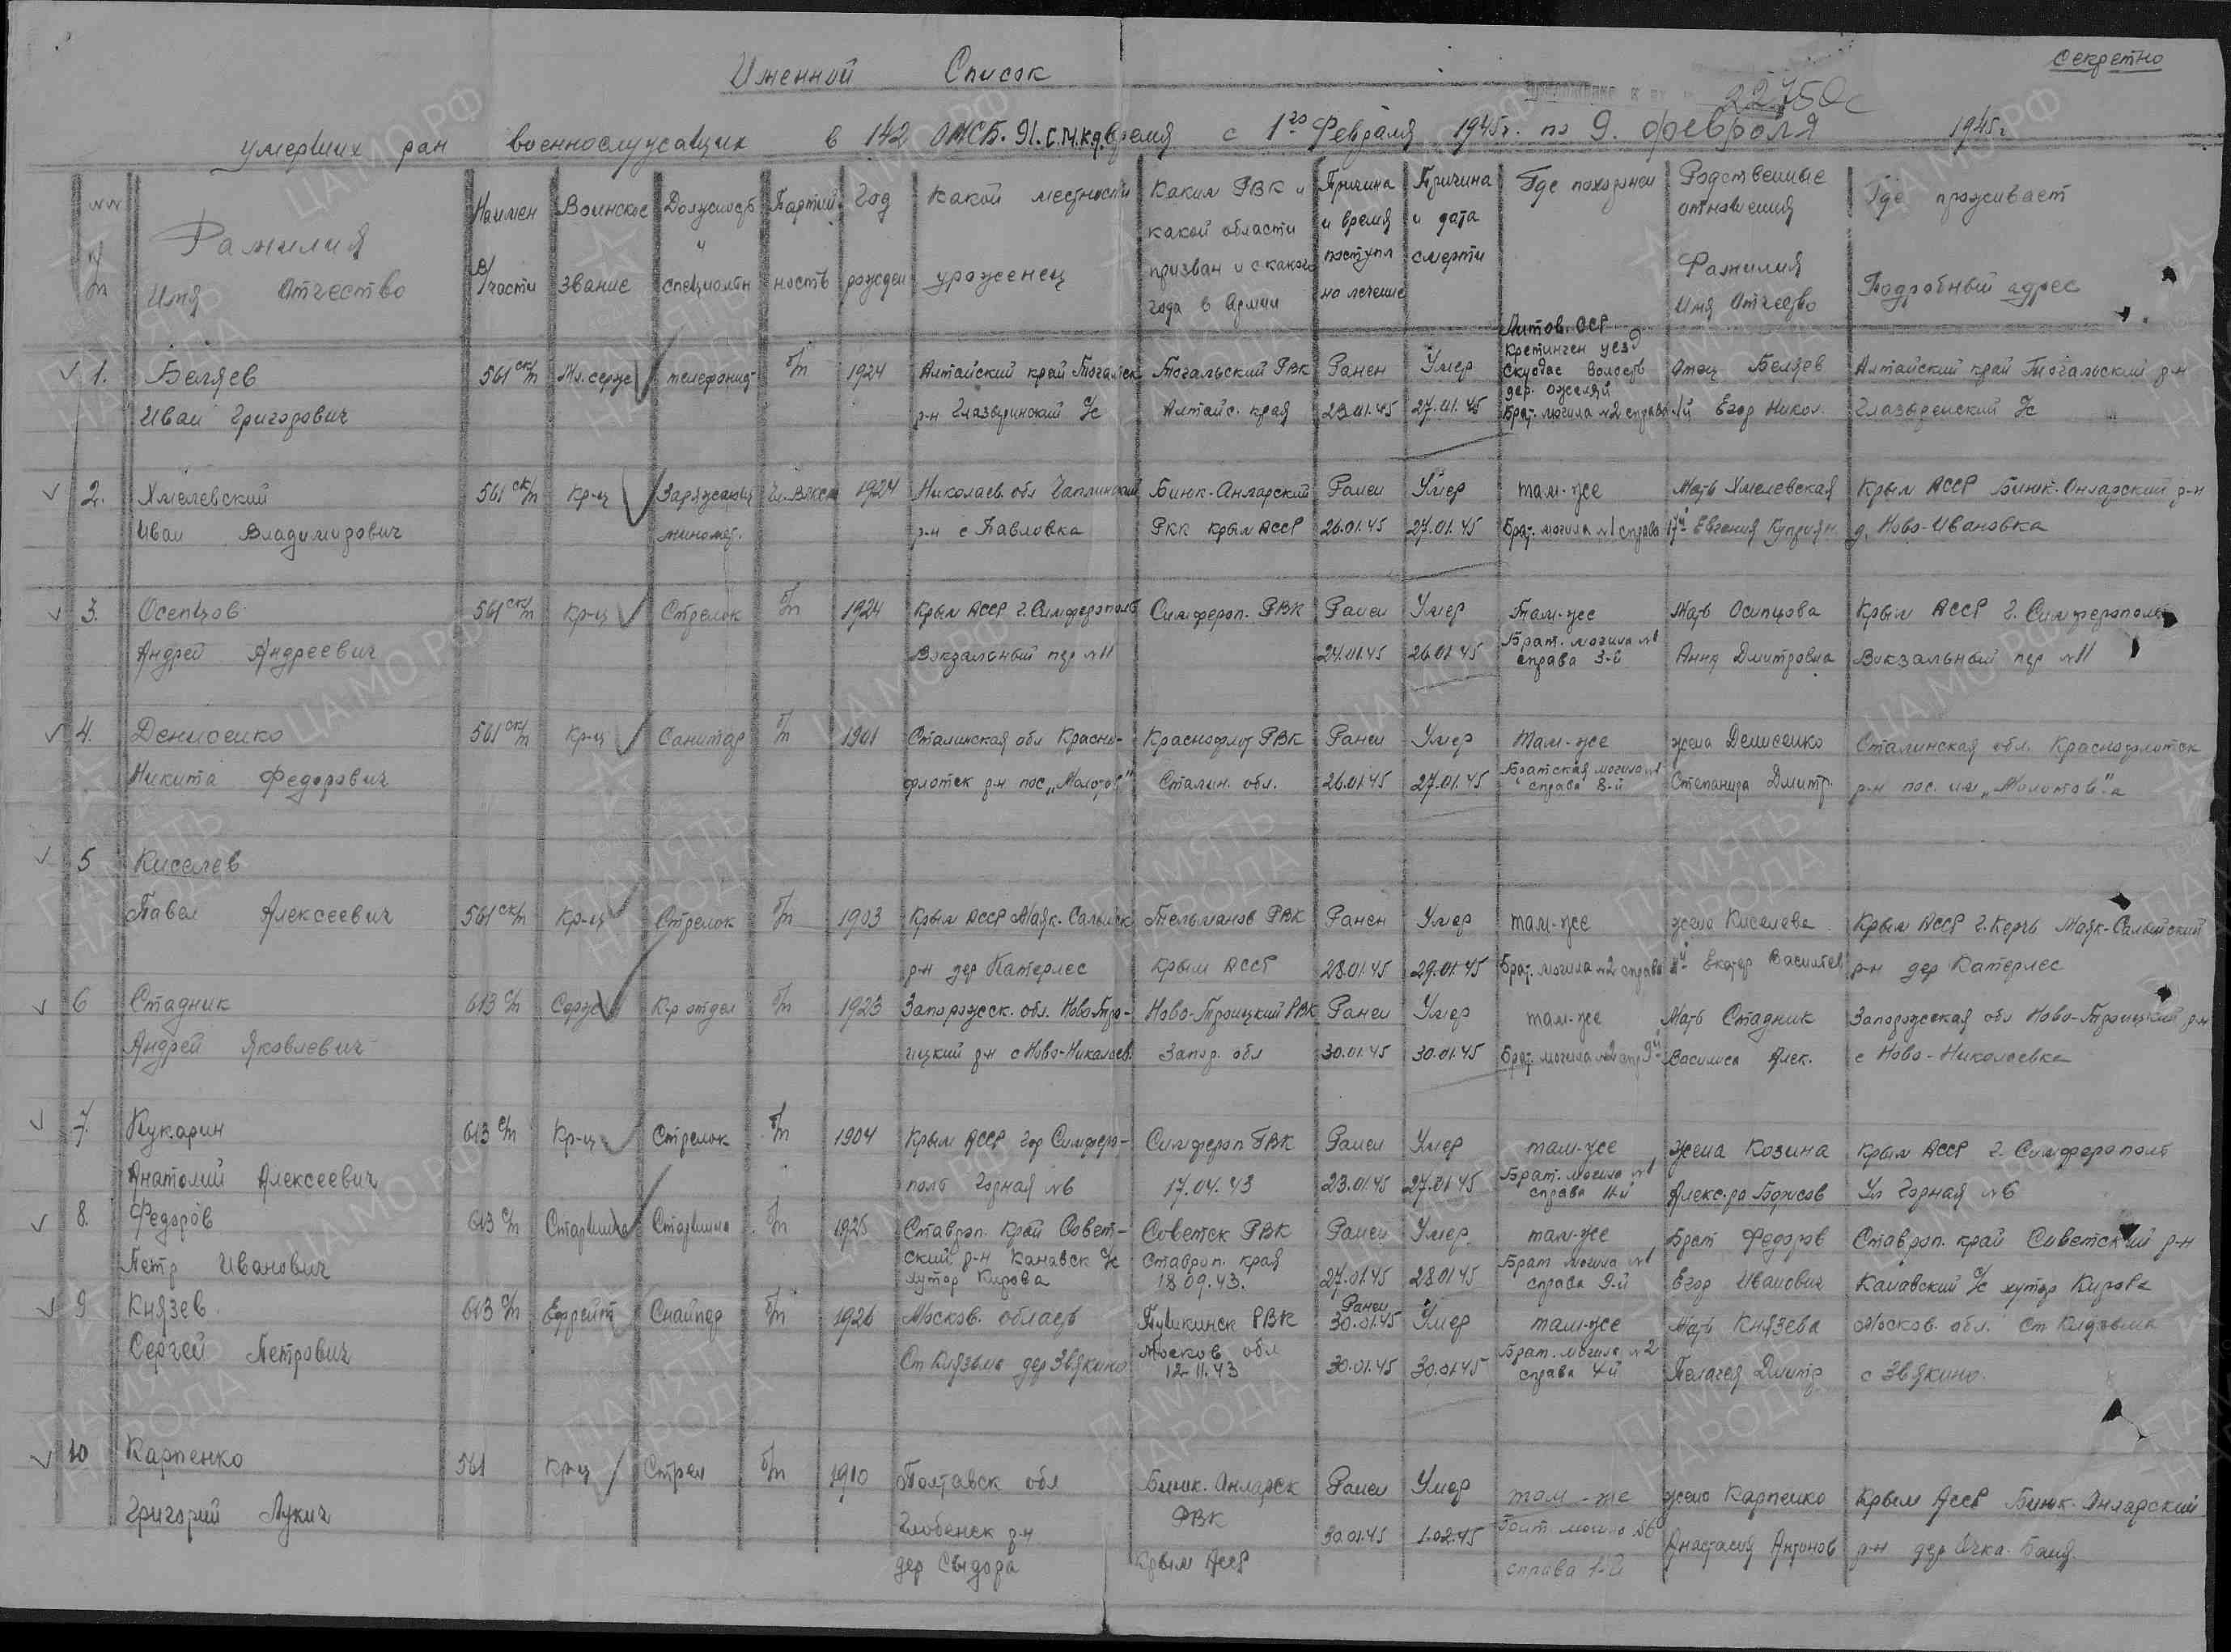 Секретно
Именной Список
22750с
умерших ран военнослужащих в 142 ОМСБ. 91. с.м.к.д. время с 1го Февраля 1945г. по 9. февраля 1945г
№№ п/п
Фамилия Имя Отчество
Наимен в/части
Воинское звание
Должность и специальн
Партий ность
Год рожден
Какой местности уроженец
Каким РВК и какой области призван и с какого года в Армии
Причина и время поступл на лечение
Причина и дата смерти
Где похоронен
Родственные отношения Фамилия Имя Отчество
Где проживает Подробный адрес
Литов. ССР
Кретинген уезд
1. Беляев 561 ск/п Мл. серж телефонист б/п 1924 Алтайский край Тогальск Тогальский РВК Ранен Умер Скуодас волость Отец Беляев Алтайский край Тогальский р-н
дер.
Иван Григорович р-н Глазыринский с/с Алтайс. края 23.01.45 27.01.45 Брат. могила №2 справа 1й Егор Никол. Глазыренский с/с
2. Хмелевский 561 ск/п Кр-ц Заряжающ Чл. ВЛКСМ 1924 Николаев. обл Чаплинский Биюк-Онларский Ранен Умер там-же Мать Хмелевская Крым АССР Биюк-Онларский р-н
Иван Владимирович миномет. р-н с Павловка РКК Крым АССР 26.01.45 27.01.45 Брат. могила №1 справа Евгения Куприян. д. Ново-Ивановка
3. Осепцов 561 ск/п Кр-ц Стрелок б/п 1924 Крым АССР г. Симферополь Симфероп. РВК Ранен Умер Там-же Мать Осипцова Крым АССР г. Симферополь
Андрей Андреевич Вокзальный пер №11 24.01.45 26.01.45 Брат. могила №1 справа 3-й Анна Дмитровна Вокзальный пер №11
4. Денисенко 561 ск/п Кр-ц Санитар б/п 1901 Сталинская обл Красно- Краснофлот РВК Ранен Умер Там-же жена Денисенко Сталинская обл. Краснофлотск
Никита Федорович флотск р-н пос „Молотов" Сталин. обл. 26.01.45 27.01.45 Братская могила №1 справа 8-й Степанида Дмитр. р-н пос. им „Молотов"а
5 Киселев
Павел Алексеевич 561 ск/п Кр-ц Стрелок б/п 1903 Крым АССР Маяк-Салынск Тельманов РВК Ранен Умер там-же жена Киселева Крым АССР г. Керчь Маяк-Салынский
р-н дер Катерлес Крым АССР 28.01.45 29.01.45 Брат. могила №2 справа Екатер Василев р-н дер Катерлес
6 Стадник 613 с/п Серж К-р отдел б/п 1923 Запорожск. обл. Ново-Тро- Ново-Троицкий РВК Ранен Умер там-же Мать Стадник Запорожская обл Ново-Троицкий р-н
Андрей Яковлевич ицкий р-н с Ново-Николаев. Запор. обл 30.01.45 30.01.45 Брат. могила №2 спр Василиса Алек. с Ново-Николаевка
7. Кукарин 613 с/п Кр-ц Стрелок б/п 1904 Крым АССР гор Симферо- Симфероп РВК Ранен Умер там-же жена Козина Крым АССР г. Симферополь
Анатолий Алексеевич поль Горная №6 17.04.43 23.01.45 27.01.45 Брат. могила №1 справа 11-й Алекс-ра Борисов Ул Горная №6
8. Федоров 613 с/п Старшина Старшина б/п 1925 Ставроп. край Совет- Советск РВК Ранен Умер там-же Брат Федоров Ставроп. край Советский р-н
Петр Иванович ский р-н Канавск с/с хутор Кирова Ставроп. края 18.09.43. 27.01.45 28.01.45 Брат могила №1 справа 9-й Егор Иванович Канавский с/с хутор Кирова
9 Князев 613 с/п Ефрейт Снайпер б/п 1926 Москов. область Пушкинск РВК Ранен 30.01.45 Умер там-же Мать Князева Москов. обл. Ст Клязьма
Сергей Петрович Ст Клязьма дер Звякино Москов обл 12.11.43 30.01.45 30.01.45 Брат. могила №2 справа 4-й Пелагея Дмитр с Звякино.
10 Карпенко 561 Кр-ц Стрел б/п 1910 Полтавск обл Биюк. Онларск Ранен Умер там-же жена Карпенко Крым АССР Биюк-Онларский
Григорий Лукич Глобенск р-н РВК 30.01.45 1.02.45 справа 1-й Анастасия Антонов р-н дер
дер Сыдора Крым АССР
ЦАМО РФ
ПАМЯТЬ НАРОДА